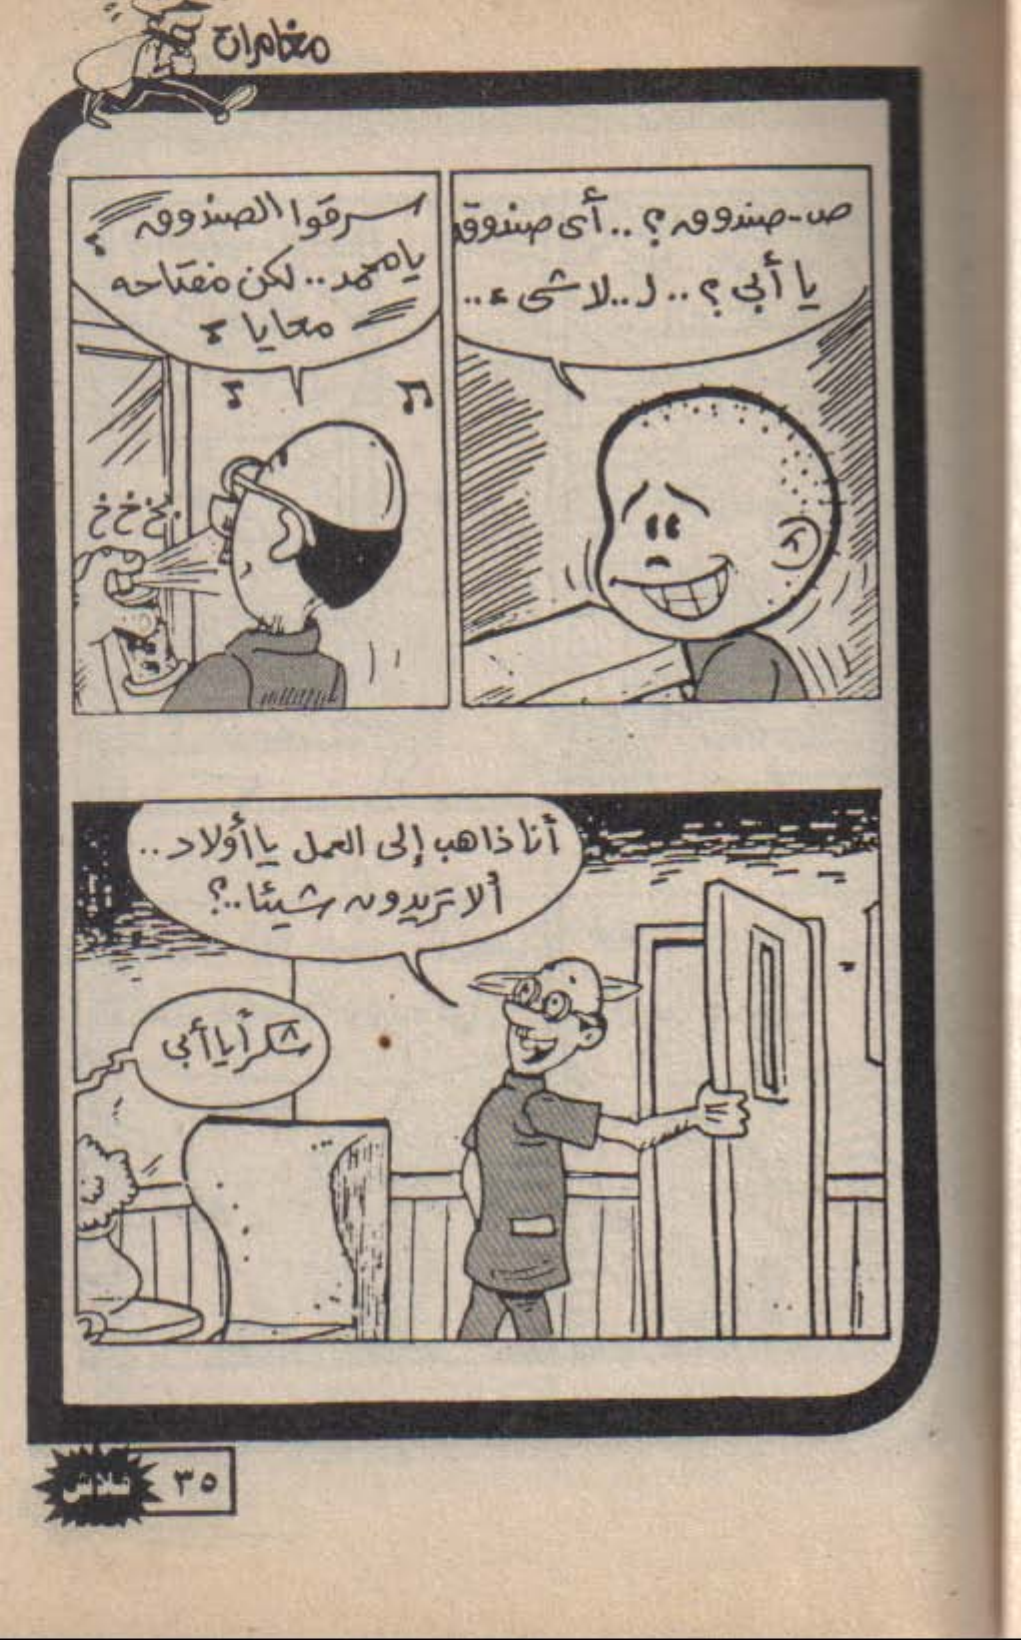 مغامرات
ص-صندوق؟..أى صندوق
يا أبى؟..ل..لا شىء..
سرقوا الصندوق
يا محمد..لكن مفتاحه
معايا
خ خ خ
أنا ذاهب إلى العمل يا أولاد..
ألا تريدون شيئا..؟
شكراً يا أبى
٣٥
فلاش